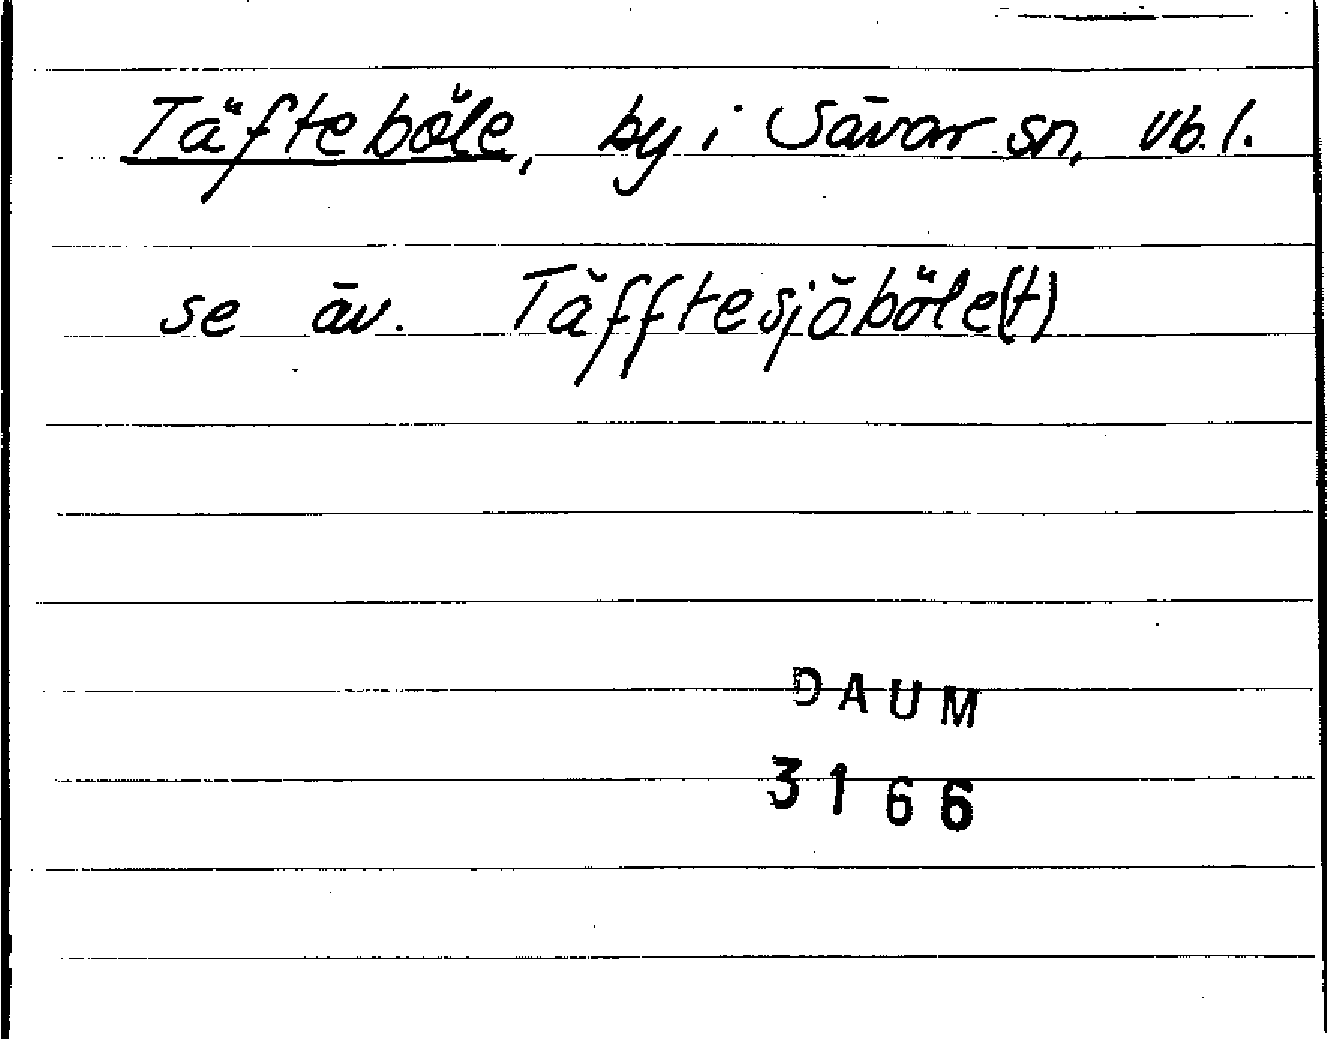 Täfteböle, by i Sävar sn, Vb. l.
se äv. Täfftesjöböle(t)
DAUM
3166